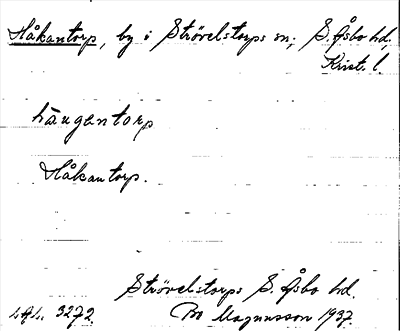 Håkantorp, by i Strövelstorps sn, S. Åsbo hd,
Krist. l.
hångentorp
Håkantorp.
Strövelstorps S. Åsbo hd.
3272. Bo Magnusson 1937.